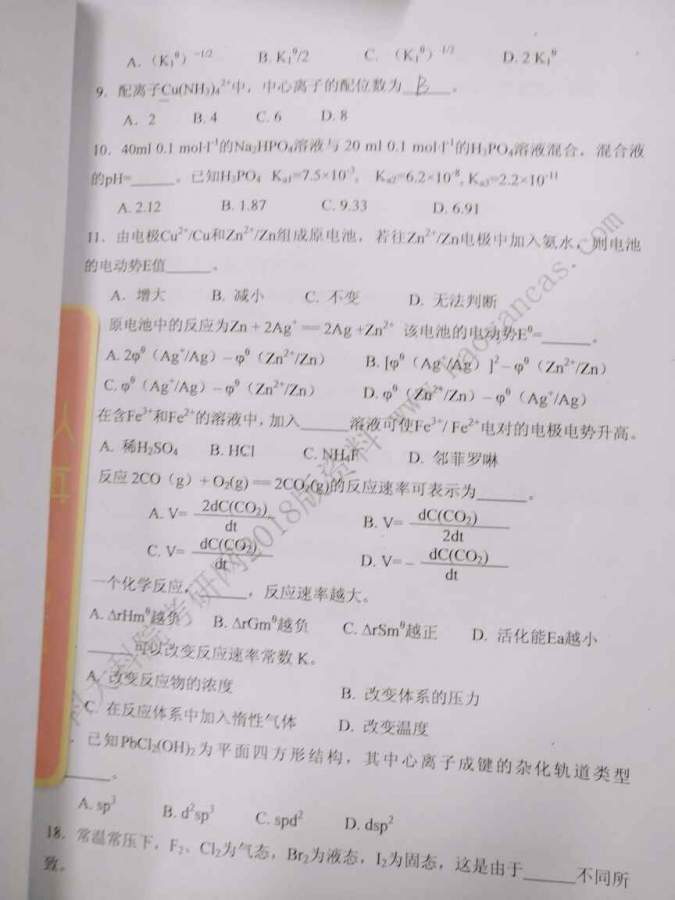 A.（K₁ᶿ）⁻¹ᐟ² B. K₁ᶿ/2 C.（K₁ᶿ）¹ᐟ² D. 2 K₁ᶿ
9. 配离子Cu(NH₃)₄²⁺中，中心离子的配位数为 B 。
A. 2 B. 4 C. 6 D. 8
10. 40ml 0.1 mol·l⁻¹的Na₂HPO₄溶液与 20 ml 0.1 mol·l⁻¹的H₃PO₄溶液混合，混合液
的pH=______。已知H₃PO₄ Kₐ₁=7.5×10⁻³, Kₐ₂=6.2×10⁻⁸, Kₐ₃=2.2×10⁻¹¹
A. 2.12 B. 1.87 C. 9.33 D. 6.91
11. 由电极Cu²⁺/Cu和Zn²⁺/Zn组成原电池，若往Zn²⁺/Zn电极中加入氨水，则电池
的电动势E值______。
A. 增大 B. 减小 C. 不变 D. 无法判断
原电池中的反应为Zn + 2Ag⁺ == 2Ag +Zn²⁺ 该电池的电动势Eᶿ=______。
A. 2φᶿ（Ag⁺/Ag）–φᶿ（Zn²⁺/Zn） B. [φᶿ（Ag⁺/Ag）]²–φᶿ（Zn²⁺/Zn）
C. φᶿ（Ag⁺/Ag）–φᶿ（Zn²⁺/Zn） D. φᶿ（Zn²⁺/Zn）–φᶿ（Ag⁺/Ag）
在含Fe³⁺和Fe²⁺的溶液中，加入______溶液可使Fe³⁺/ Fe²⁺电对的电极电势升高。
A. 稀H₂SO₄ B. HCl C. NH₄F D. 邻菲罗啉
反应 2CO（g）+ O₂(g) == 2CO₂(g)的反应速率可表示为______。
A. V= 2dC(CO₂)/dt B. V= dC(CO₂)/2dt
C. V= dC(CO₂)/dt D. V= – dC(CO₂)/dt
一个化学反应，______，反应速率越大。
A. ΔrHmᶿ越负 B. ΔrGmᶿ越负 C. ΔrSmᶿ越正 D. 活化能Ea越小
______可以改变反应速率常数 K。
A. 改变反应物的浓度 B. 改变体系的压力
C. 在反应体系中加入惰性气体 D. 改变温度
. 已知PbCl₂(OH)₂为平面四方形结构，其中心离子成键的杂化轨道类型
______。
A. sp³ B. d²sp³ C. spd² D. dsp²
18. 常温常压下，F₂、Cl₂为气态，Br₂为液态，I₂为固态，这是由于______不同所
致。